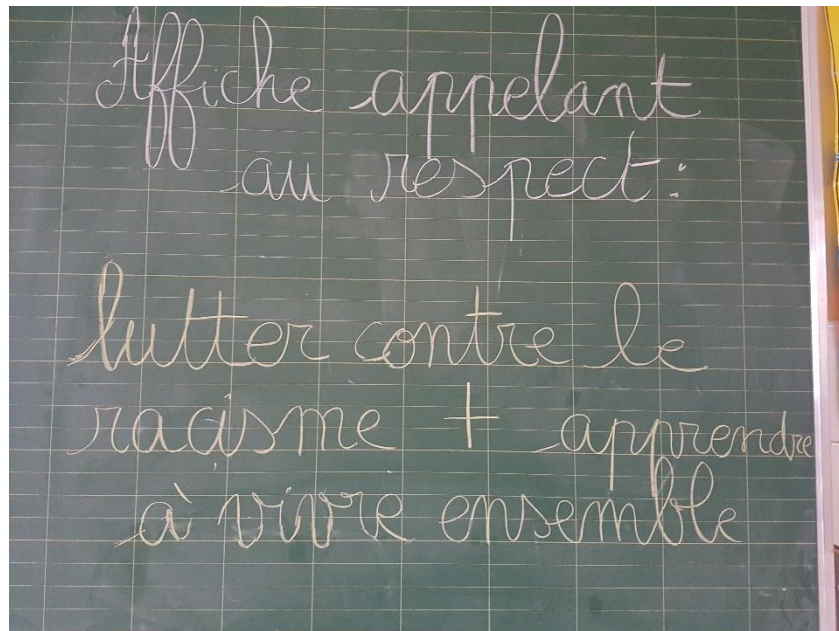 Affiche appelant
au respect :
lutter contre le
racisme + apprendre
à vivre ensemble